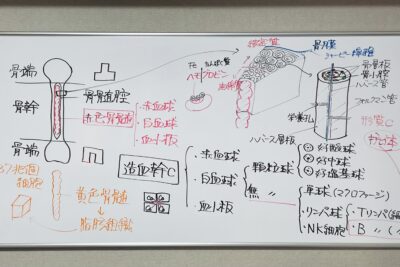 骨端
骨幹
骨端
骨髄腔
赤色骨髄
・赤血球
・白血球
・血小板
ヘモグロビン
骨膜
シャーピー線維
骨小腔
ハバース管
フォルクマン管
栄養孔
ハバース層板
造血幹C
・赤血球
・白血球
・血小板
顆粒球
無 〃
好酸球
好中球
好塩基球
単球(マクロファージ)
リンパ球
NK細胞
・Tリンパ
・B 〃
37兆個
細胞
黄色骨髄
脂肪組織